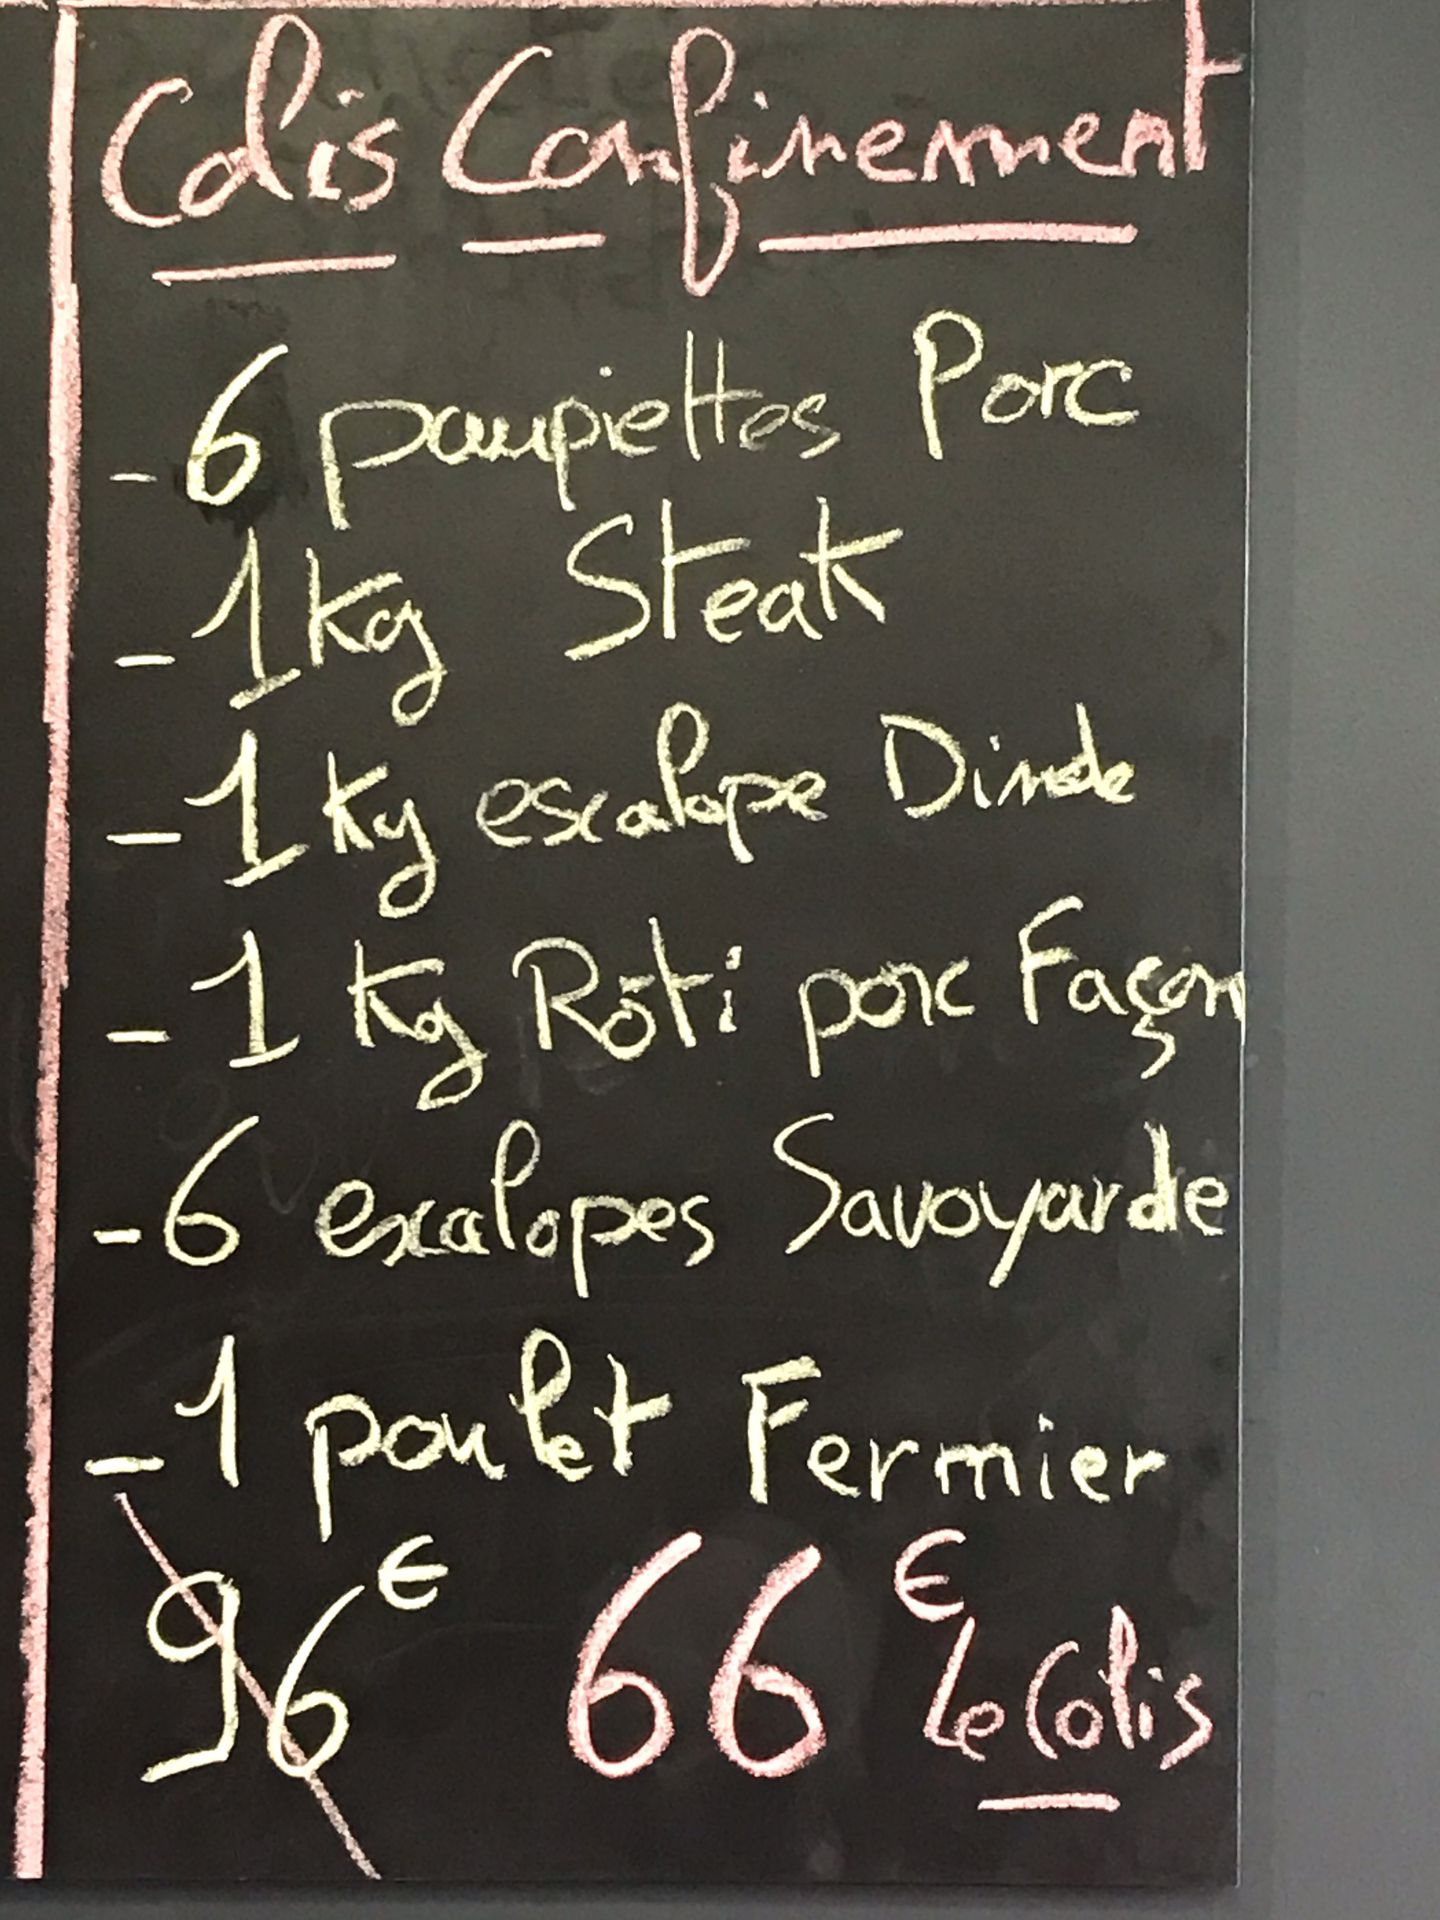 Colis Confinement
- 6 paupiettes Porc
- 1kg Steak
- 1kg escalope Dinde
- 1 Kg Rôti porc Façon
- 6 escalopes Savoyarde
- 1 poulet Fermier
96€ 66€ le Colis